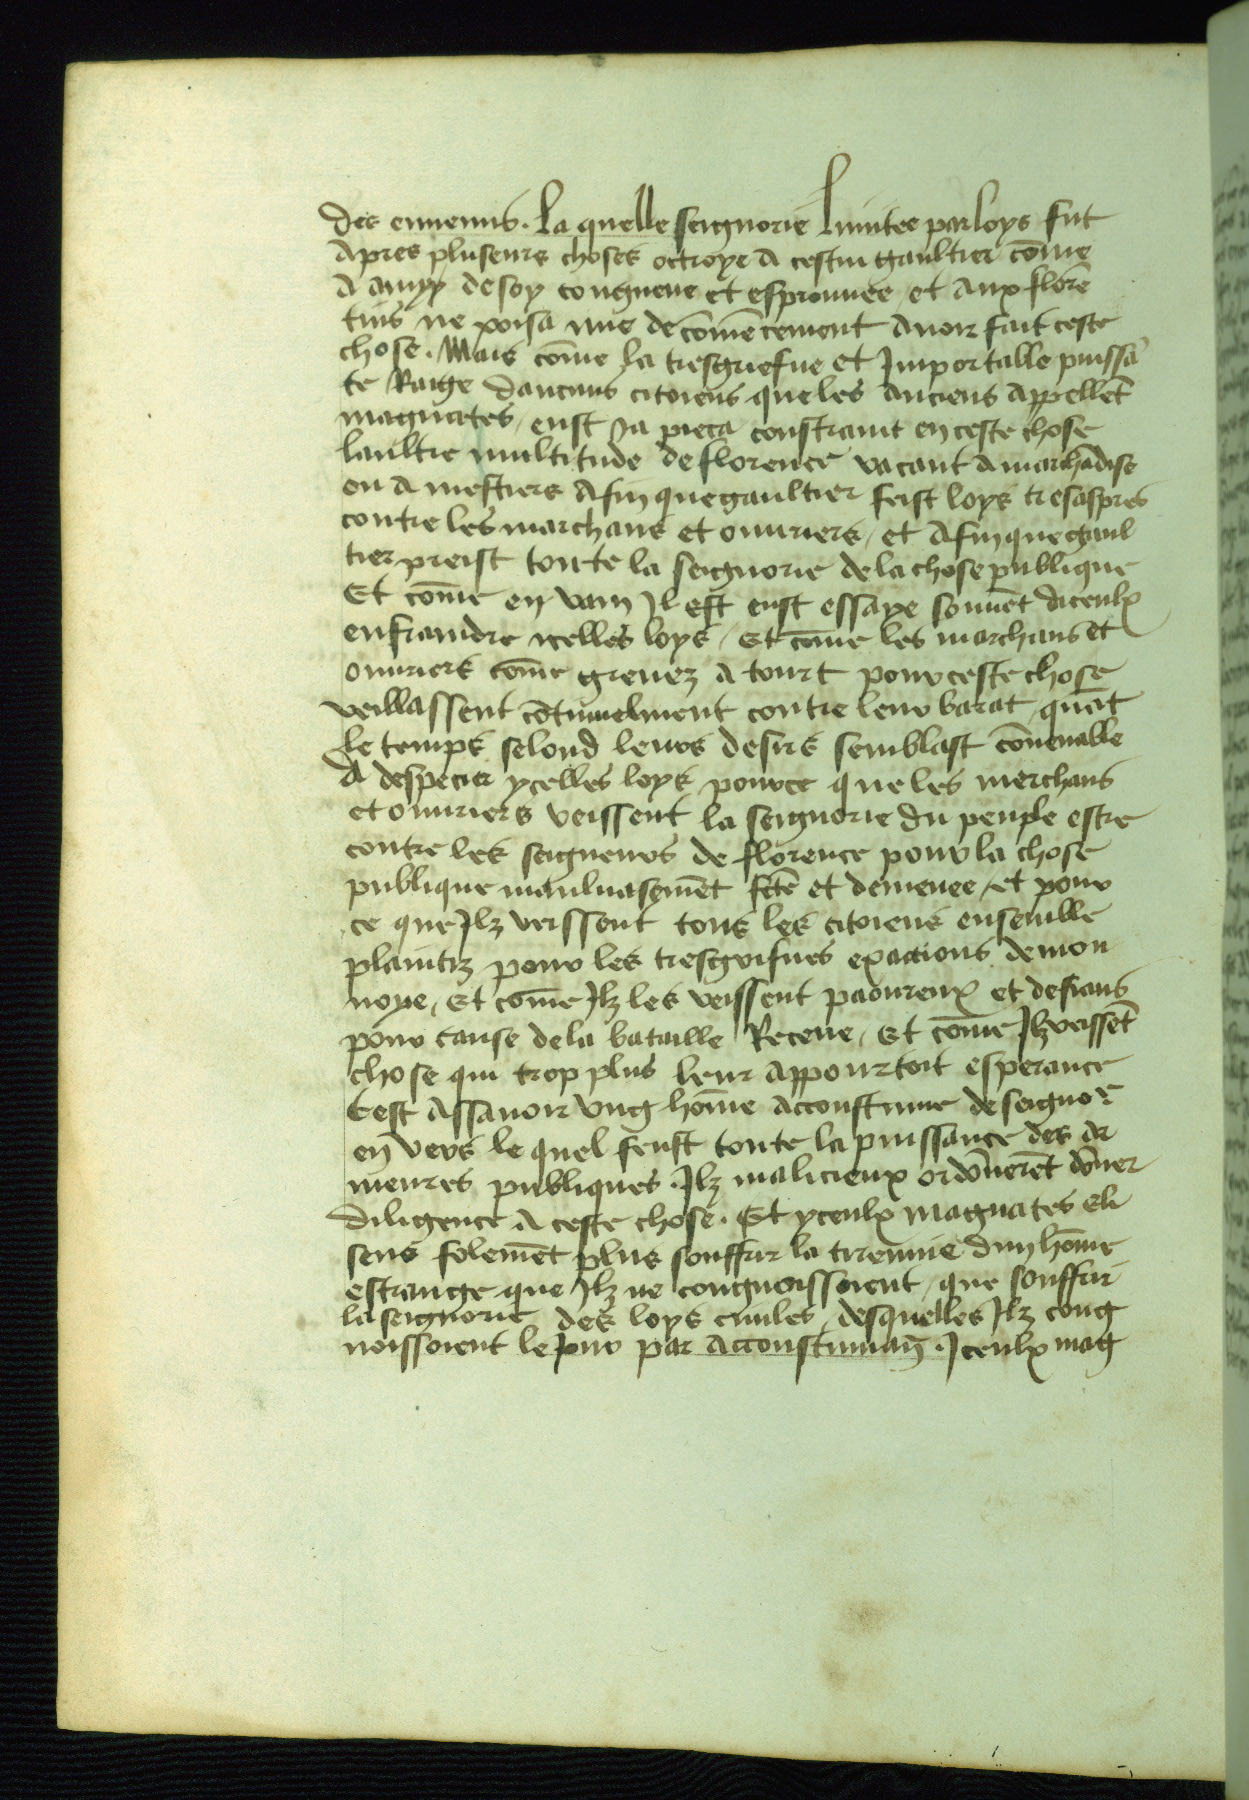 des ennemis. La quelle seignorie limitee par loys fut
Apres pluseurs choses octroye A cestui gaultier cōme
A amy de soy congneue et esprouuee et Aux florē
tins ne poisa nue de cōmēcement Auoir fait ceste
chose. Mais cōme la tresgriefue et Importable puissā
te Raige daucuns citoiens que les Anciens Appellēt
magnates eust ia pieca constraint en ceste chose
laultre multitude de florence vacant A marchādise
ou A mestiers Afin que gaultier feist loys tresaspres
contre les marchans et ouuriers, et Afin que gaul
tier preist toute la seignorie de la chose publique
Et cōme en vain Il est eust essaye souuēt diceulx
enfraindre icelles loys, Et cōme les marchans et
ouuriers cōme greuez A tourt pour ceste chose
veillassent cōtinuelment contre leur barat, quāt
le temps selond leurs desirs semblast cōuenable
A despecier ycelles loys pource que les merchans
et ouuriers veissent la seignorie du peuple estre
contre les seigneurs de florence pour la chose
publique mauluaisemēt fēte et demenee, et pour
ce que Ilz veissent tous les citoiens ensemble
plaintiz pour les tresgriefues exactions de mon
noye, Et cōme Ilz les veissent paoureux et desirans
pour cause de la bataille Receue, Et cōme Ilz veissēt
chose qui trop plus leur Appourtoit esperance
Cest Assauoir vng hōme Accoustume de seignor̄
en vers le quel feust toute la puissance des Ar
meures publiques. Ilz malicieux ordōnerēt dōner
diligence A ceste chose. Et yceulx magnates Eli
sens folemēt plus souffrir la tirennie dun hōme
estrange que Ilz ne congnoissoient, que souffrir
la seignorie des loys ciuiles, desquelles Ilz cong
noissoient le Jour par Accoustuman̄. Iceulx mag